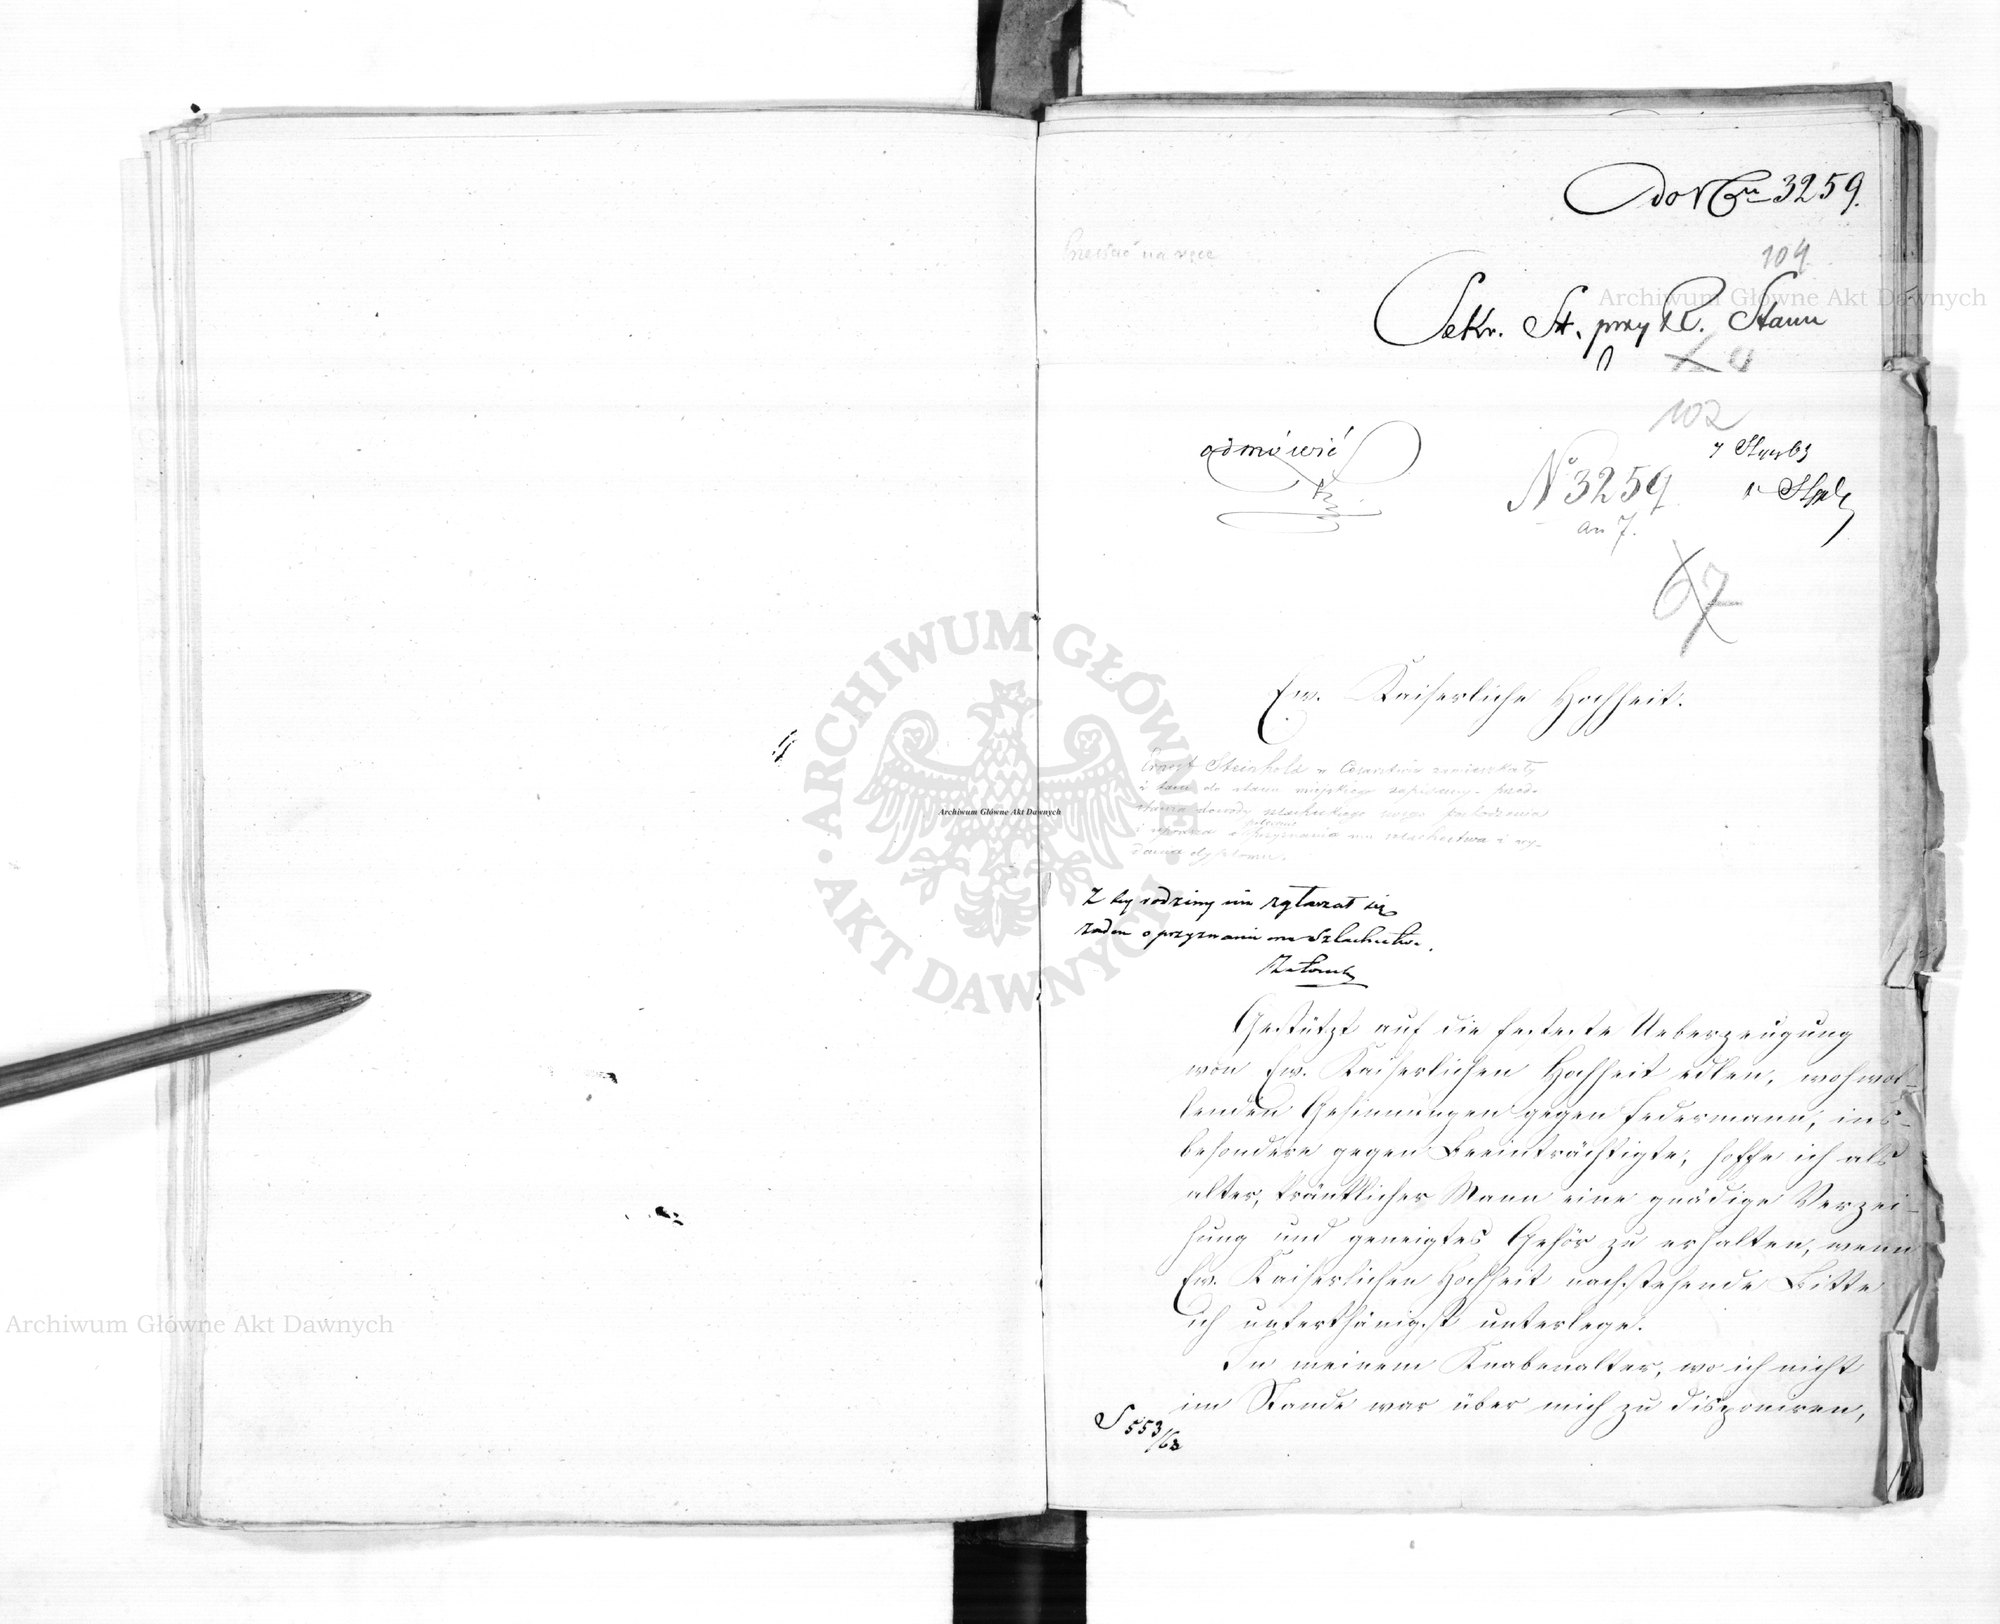 do N 3259.
Przesłać na ręce
104
Sekr. St. przy R. Stanu
102
odmówić
7 Stycz 63
No 3259
an 7.
67
Ew. Kaiserliche Hochheit.
Ernest Steinhold w Cesarstwie zamieszkały
i tam do stanu miejskiego zapisany, przed-
stawia dowody szlacheckiego swego pochodzenia
i uprasza o przyznanie mu szlachectwa i wy-
danie dyplomu.
Z tej rodziny nie zgłaszał się
żaden o przyznanie mu Szlachectwa.
Gestützt auf die festeste Ueberzeugung
von Ew. Kaiserlichen Hochheit edlen, wohwol-
lenden Gesinnungen gegen Jedermann, ins-
besondere gegen Beeinträchtigte, hoffe ich als
alter, kränklicher Mann eine gnädige Verzei-
hung und geneigtes Gehör zu erhalten, wenn
Ew. Kaiserlichen Hochheit nachstehende Bitte
ich unterthänigst unterlege.
In meinem Knabenalter, wo ich nicht
im Stande war über mich zu disponiren,
S 553/63
Archiwum Główne Akt Dawnych
ARCHIWUM GŁÓWNE AKT DAWNYCH
Archiwum Główne Akt Dawnych
Archiwum Główne Akt Dawnych